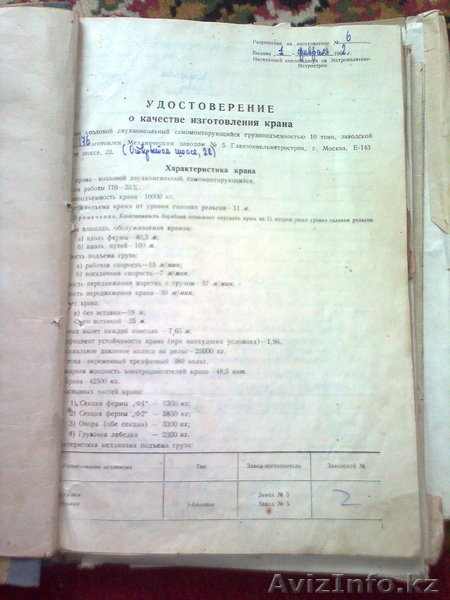 Разрешение на изготовление № 6
Выдано 1 февраля 196
Инспекцией котлнадзора на Метрополитене-
Метрострое
УДОСТОВЕРЕНИЕ
о качестве изготовления крана
козловой двухконсольный самомонтирующийся грузоподъемностью 10 тонн, заводской
176 изготовлен Механическим заводом № 5 Главтоннельметростроя, г. Москва, Е-143
шоссе, 22. (Открытое шоссе, 22)
Характеристика крана
крана—козловой двухконсольный самомонтирующийся.
работы ПВ—25%.
крана—10000 кг.
подъема крана от уровня головки рельсов—11 м.
Примечание. Канатоемкость барабана позволяет опускать крюк на 11 метров ниже уровня головки рельсов.
площадь, обслуживаемая краном:
а) вдоль фермы—40,3 м;
б) вдоль путей—100 м.
подъема груза:
а) рабочая скорость—15 м/мин,
б) посадочная скорость—7 м/мин.
передвижения каретки с грузом—37 м/мин.
передвижения крана—30 м/мин.
крана:
а) без вставки—16 м;
вставкой 25 м.
вылет каждой консоли—7,65 м.
устойчивости крана (при наихудших условиях)—1,96.
давление колеса на рельс—25000 кг.
тока—переменный трехфазный 380 вольт.
мощность электродвигателей крана—48,5 квт.
крана—42500 кг.
основных частей крана:
1) Секция фермы „Ф1“ — 7350 кг;
2) Секция фермы „Ф2“ — 5850 кг;
3) Опора (обе секции) — 3300 кг;
4) Грузовая лебедка — 2300 кг.
механизма подъема груза:
Наименование механизма Тип Завод-изготовитель Заводской №
Завод № 5 2
Завод № 5
AvizInfo.kz